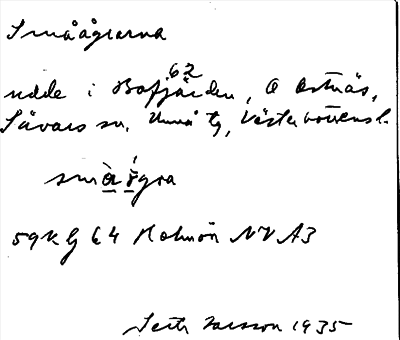 Småågrarna
62
udde i Bofjärden, O Ostnäs,
Sävars sn, Umeå tg, Västerbottens l.
smàågra
59K g 64 Holmön NV A3
Larsson 1935